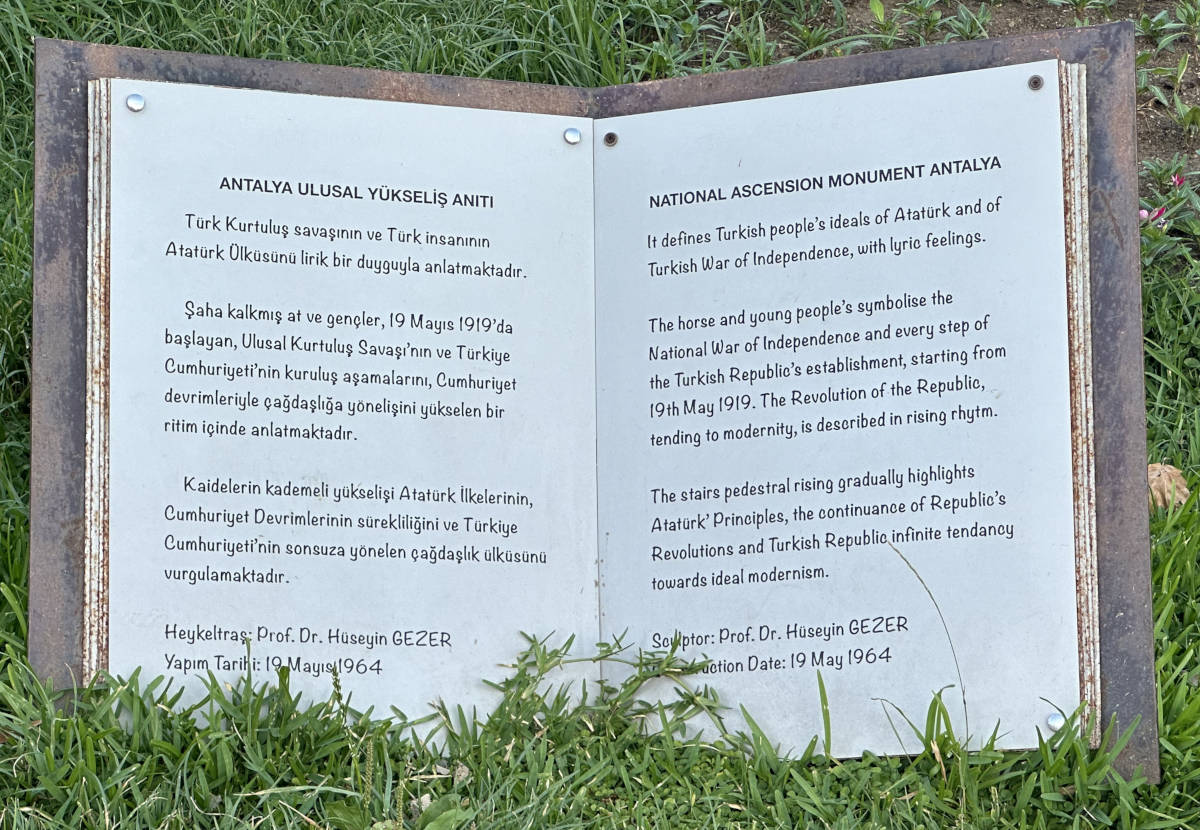 ANTALYA ULUSAL YÜKSELİŞ ANITI
Türk Kurtuluş savaşının ve Türk insanının
Atatürk Ülküsünü lirik bir duyguyla anlatmaktadır.
Şaha kalkmış at ve gençler, 19 Mayıs 1919'da
başlayan, Ulusal Kurtuluş Savaşı'nın ve Türkiye
Cumhuriyeti'nin kuruluş aşamalarını, Cumhuriyet
devrimleriyle çağdaşlığa yönelişini yükselen bir
ritim içinde anlatmaktadır.
Kaidelerin kademeli yükselişi Atatürk İlkelerinin,
Cumhuriyet Devrimlerinin sürekliliğini ve Türkiye
Cumhuriyeti'nin sonsuza yönelen çağdaşlık ülküsünü
vurgulamaktadır.
Heykeltraş: Prof. Dr. Hüseyin GEZER
Yapım Tarihi: 19 Mayıs 1964
NATIONAL ASCENSION MONUMENT ANTALYA
It defines Turkish people's ideals of Atatürk and of
Turkish War of Independence, with lyric feelings.
The horse and young people's symbolise the
National War of Independence and every step of
the Turkish Republic's establishment, starting from
19th May 1919. The Revolution of the Republic,
tending to modernity, is described in rising rhytm.
The stairs pedestral rising gradually highlights
Atatürk' Principles, the continuance of Republic's
Revolutions and Turkish Republic infinite tendancy
towards ideal modernism.
Sculptor: Prof. Dr. Hüseyin GEZER
Date: 19 May 1964